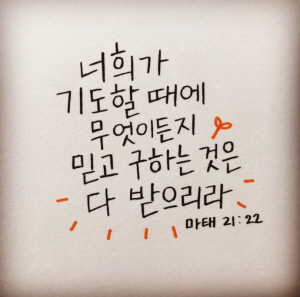 너희가
기도할 때에
무엇이든지
믿고 구하는 것은
다 받으리라
마태 21:22